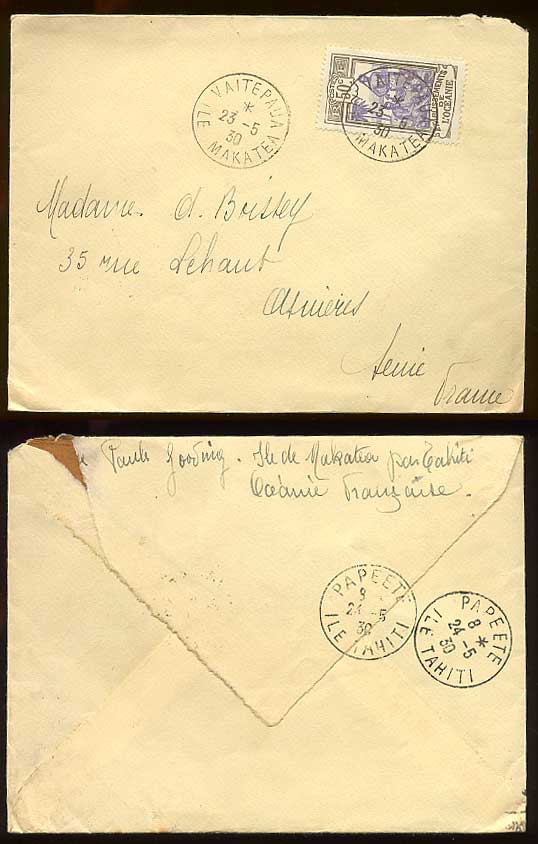 VAITEPAUA
*
23 -5
30
ILE MAKATEA
POSTES
50c
ETABLISSEMENTS
DE
L'OCÉANIE
VAITEPAUA
*
23 -5
30
MAKATEA
Madame A. Boissey
35 rue Lehaut
Asnières
Seine
France
Paule Gooding. Ile de Makatea par Tahiti
Océanie Française.
PAPEETE
8
24 -5
30
ILE TAHITI
PAPEETE
8 *
24 -5
30
ILE TAHITI